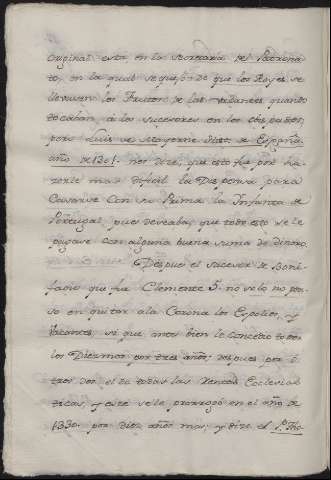 original esta en la Secretaria del Patrona
to, en la qual se quejò de que los Reyes se
llevasen los Frutos de las vacantes quando
tocaban à los sucesores en los obispados,
pero Luis de Mayerne Hist. de España
año de 1301. nos dize, que esto fue por ha
zerle mas dificil la Dispensa para
Casarse con su Prima la Infanta de
Portugal pues deseaba, que todo esto se le
pagase con alguna buena suma de dinero
Despues el sucesor de Boni
facio que fue Clemente 5. no solo no pen
so en quitar a la Corona los Espolios, y
Vacantes, si que antes bien le concedio todos
los Diezmos por tres años, despues por o
tros dos el de todas las Rentas Ecclesias
ticas, y este se le prorrogò en el año de
1330. por diez años mas, y dize el P. Tho